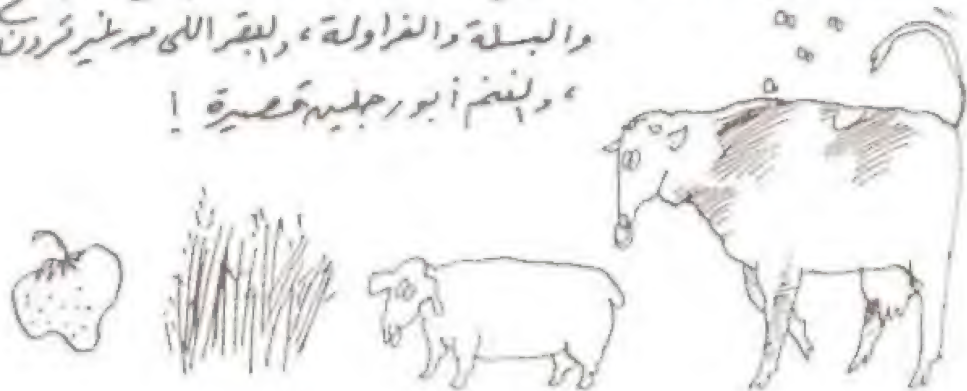 والبسلة والفراولة، والبقر اللى من غير قرون
، والغنم أبو رجلين قصيرة !